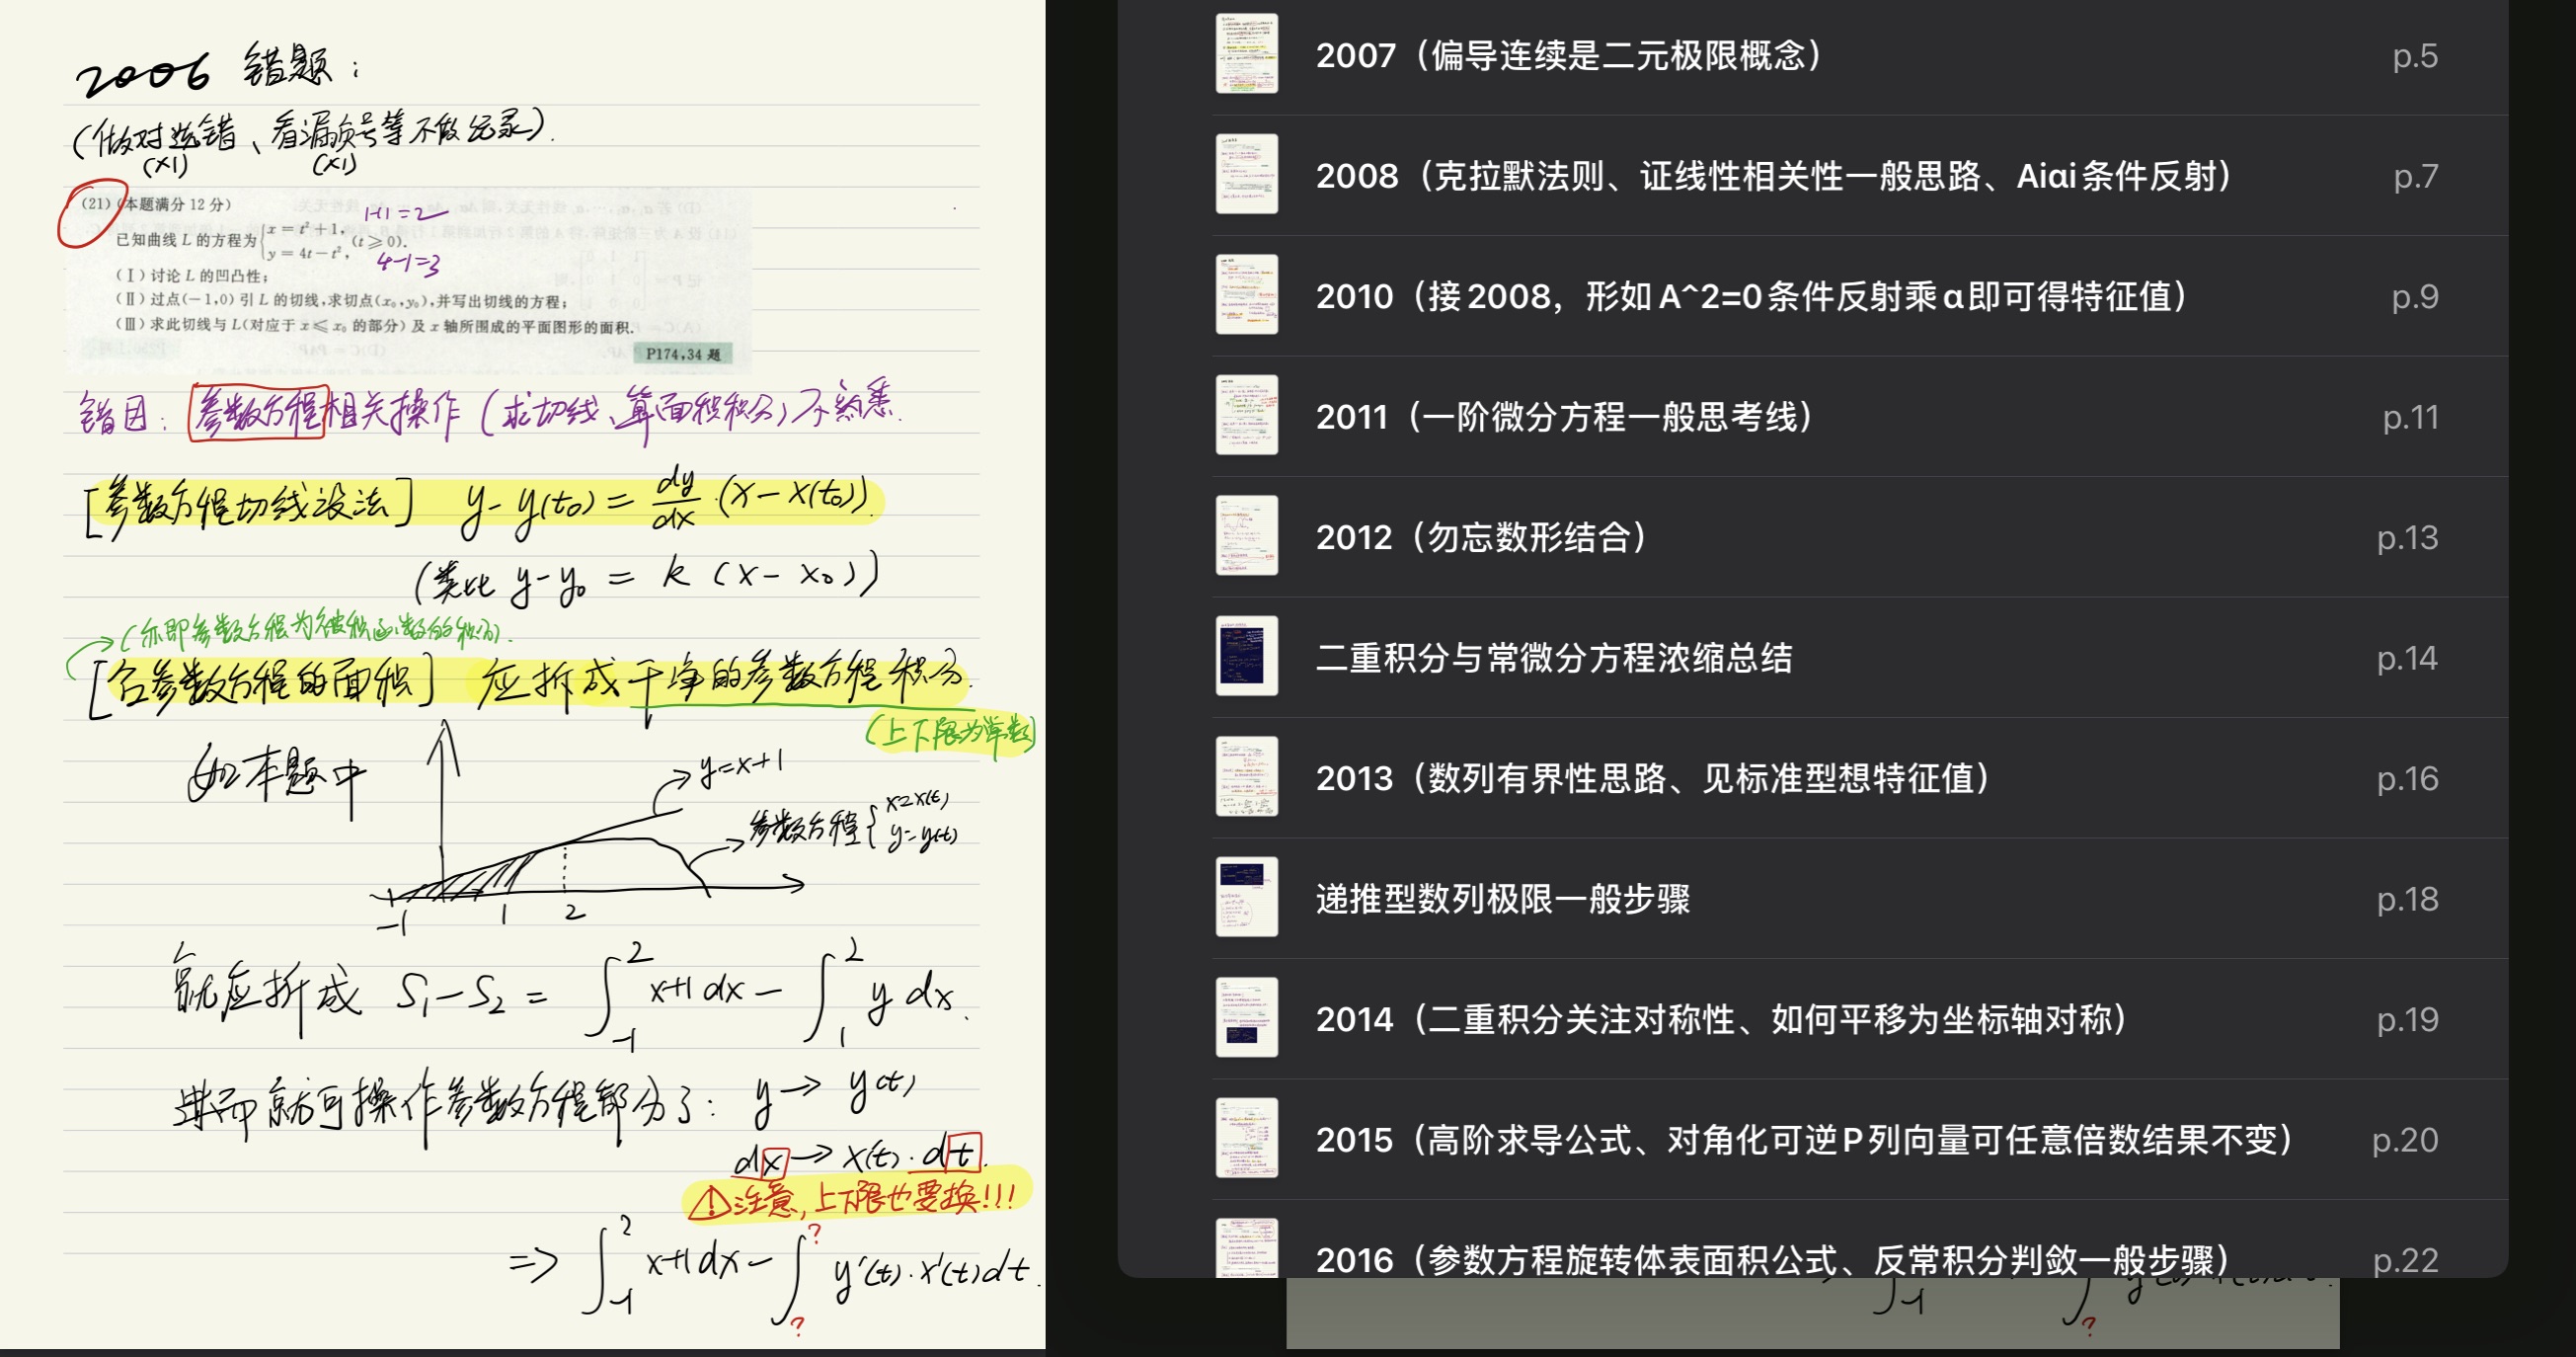 2006 错题：
（做对选错、看漏负号等不做纪录）.
(×1) (×1)
(21)(本题满分 12 分)
1+1=2
已知曲线 L 的方程为{x = t²+1, y = 4t-t², (t⩾0).
4-1=3
(Ⅰ) 讨论 L 的凹凸性；
(Ⅱ) 过点(-1,0) 引 L 的切线,求切点(x₀,y₀),并写出切线的方程；
(Ⅲ) 求此切线与 L(对应于 x⩽x₀ 的部分) 及 x 轴所围成的平面图形的面积.
P174,34 题
错因：参数方程相关操作（求切线、算面积积分）不熟悉.
[参数方程切线设法] y-y(t₀) = dy/dx ·(x-x(t₀)).
(类比 y-y₀ = k (x-x₀))
(亦即参数方程为被积函数的积分).
[含参数方程的面积] 应拆成干净的参数方程积分.
(上下限为单数)
如本题中
y=x+1
参数方程{x=x(t) y=y(t)
-1 1 2
就应拆成 S₁-S₂ = ∫₋₁² x+1 dx - ∫₁² y dx.
进而就可操作参数方程部分了： y→y(t)
dx→x(t)·dt.
⚠注意，上下限也要换!!!
=> ∫₋₁² x+1 dx - ∫?? y'(t)·x'(t)dt.
2007（偏导连续是二元极限概念） p.5
2008（克拉默法则、证线性相关性一般思路、Aiαi条件反射） p.7
2010（接2008，形如A^2=0条件反射乘α即可得特征值） p.9
2011（一阶微分方程一般思考线） p.11
2012（勿忘数形结合） p.13
二重积分与常微分方程浓缩总结 p.14
2013（数列有界性思路、见标准型想特征值） p.16
递推型数列极限一般步骤 p.18
2014（二重积分关注对称性、如何平移为坐标轴对称） p.19
2015（高阶求导公式、对角化可逆P列向量可任意倍数结果不变） p.20
2016（参数方程旋转体表面积公式、反常积分判敛一般步骤） p.22